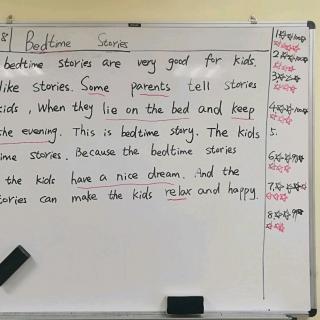 8
Bedtime Stories
bedtime stories are very good for kids.
like stories. Some parents tell stories
kids, When they lie on the bed and keep
the evening. This is bedtime story. The kids
ime stories. Because the bedtime stories
the kids have a nice dream. And the
tories can make the kids relax and happy.
1
2
3
4
5.
6
7
8